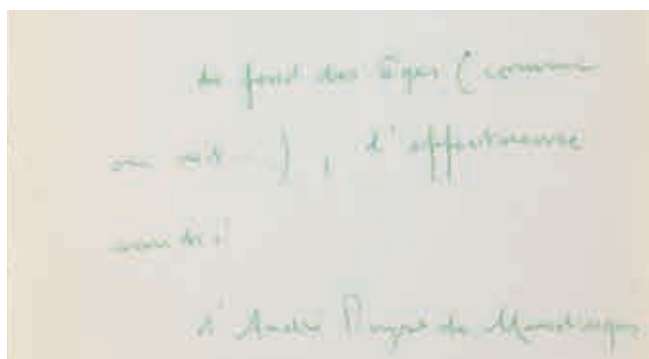 du fond des âges (comme
on dit...), d'appartenance
d'André Pieyre de Mandiargues